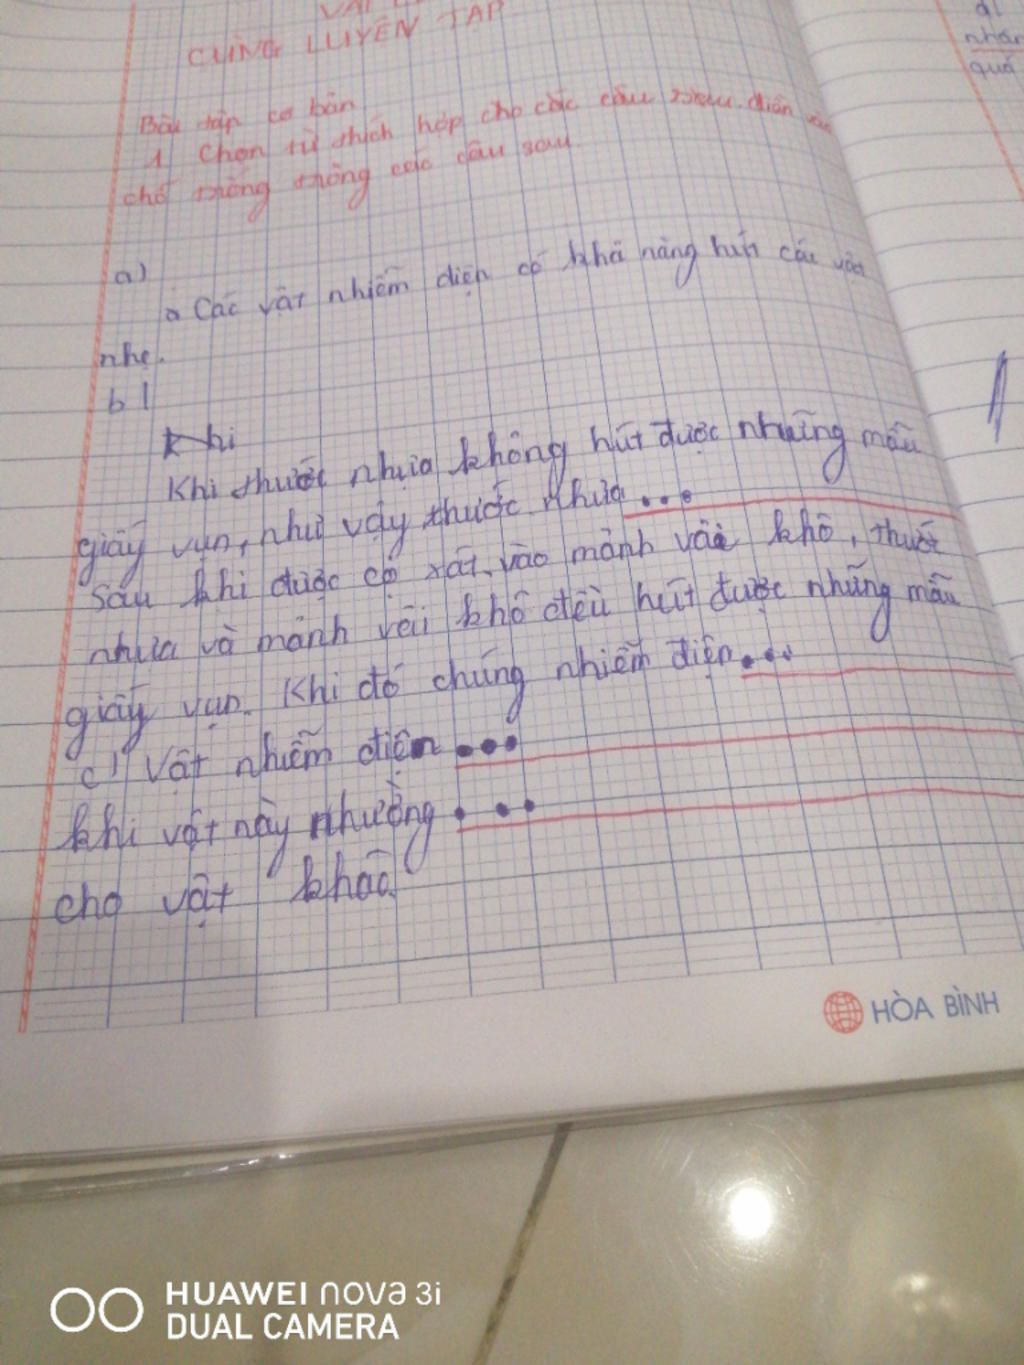 CÙNG LUYỆN TẬP
Bài tập cơ bản
1 Chọn từ thích hợp cho các câu sau điền vào
chỗ trống trong các câu sau
a)
a Các vật nhiễm điện có khả năng hút các vật
nhẹ.
b)
Khi
Khi thước nhựa không hút được những mẫu
giấy vụn, như vậy thước nhựa...
Sau khi được cọ xát vào mảnh vải khô, thước
nhựa và mảnh vải khô đều hút được những mẫu
giấy vụn. Khi đó chúng nhiễm điện...
c) Vật nhiễm điện ...
khi vật này nhường ...
cho vật khác
nhân
quá
HÒA BÌNH
HUAWEI nova 3i
DUAL CAMERA